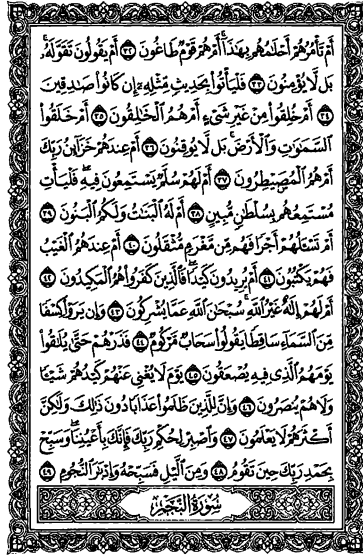 أَمْ تَأْمُرُهُمْ أَحْلَامُهُم بِهَـٰذَا ۚ أَمْ هُمْ قَوْمٌ طَاغُونَ ٣٢ أَمْ يَقُولُونَ تَقَوَّلَهُ ۚ
بَل لَّا يُؤْمِنُونَ ٣٣ فَلْيَأْتُوا بِحَدِيثٍ مِّثْلِهِ إِن كَانُوا صَادِقِينَ
٣٤ أَمْ خُلِقُوا مِنْ غَيْرِ شَيْءٍ أَمْ هُمُ الْخَالِقُونَ ٣٥ أَمْ خَلَقُوا
السَّمَاوَاتِ وَالْأَرْضَ ۚ بَل لَّا يُوقِنُونَ ٣٦ أَمْ عِندَهُمْ خَزَائِنُ رَبِّكَ
أَمْ هُمُ الْمُصَيْطِرُونَ ٣٧ أَمْ لَهُمْ سُلَّمٌ يَسْتَمِعُونَ فِيهِ ۖ فَلْيَأْتِ
مُسْتَمِعُهُم بِسُلْطَانٍ مُّبِينٍ ٣٨ أَمْ لَهُ الْبَنَاتُ وَلَكُمُ الْبَنُونَ ٣٩
أَمْ تَسْأَلُهُمْ أَجْرًا فَهُم مِّن مَّغْرَمٍ مُّثْقَلُونَ ٤٠ أَمْ عِندَهُمُ الْغَيْبُ
فَهُمْ يَكْتُبُونَ ٤١ أَمْ يُرِيدُونَ كَيْدًا ۖ فَالَّذِينَ كَفَرُوا هُمُ الْمَكِيدُونَ ٤٢
أَمْ لَهُمْ إِلَـٰهٌ غَيْرُ اللَّهِ ۚ سُبْحَانَ اللَّهِ عَمَّا يُشْرِكُونَ ٤٣ وَإِن يَرَوْا كِسْفًا
مِّنَ السَّمَاءِ سَاقِطًا يَقُولُوا سَحَابٌ مَّرْكُومٌ ٤٤ فَذَرْهُمْ حَتَّىٰ يُلَاقُوا
يَوْمَهُمُ الَّذِي فِيهِ يُصْعَقُونَ ٤٥ يَوْمَ لَا يُغْنِي عَنْهُمْ كَيْدُهُمْ شَيْئًا
وَلَا هُمْ يُنصَرُونَ ٤٦ وَإِنَّ لِلَّذِينَ ظَلَمُوا عَذَابًا دُونَ ذَٰلِكَ وَلَـٰكِنَّ
أَكْثَرَهُمْ لَا يَعْلَمُونَ ٤٧ وَاصْبِرْ لِحُكْمِ رَبِّكَ فَإِنَّكَ بِأَعْيُنِنَا ۖ وَسَبِّحْ
بِحَمْدِ رَبِّكَ حِينَ تَقُومُ ٤٨ وَمِنَ اللَّيْلِ فَسَبِّحْهُ وَإِدْبَارَ النُّجُومِ ٤٩
سُورَةُ النَّجْمِ